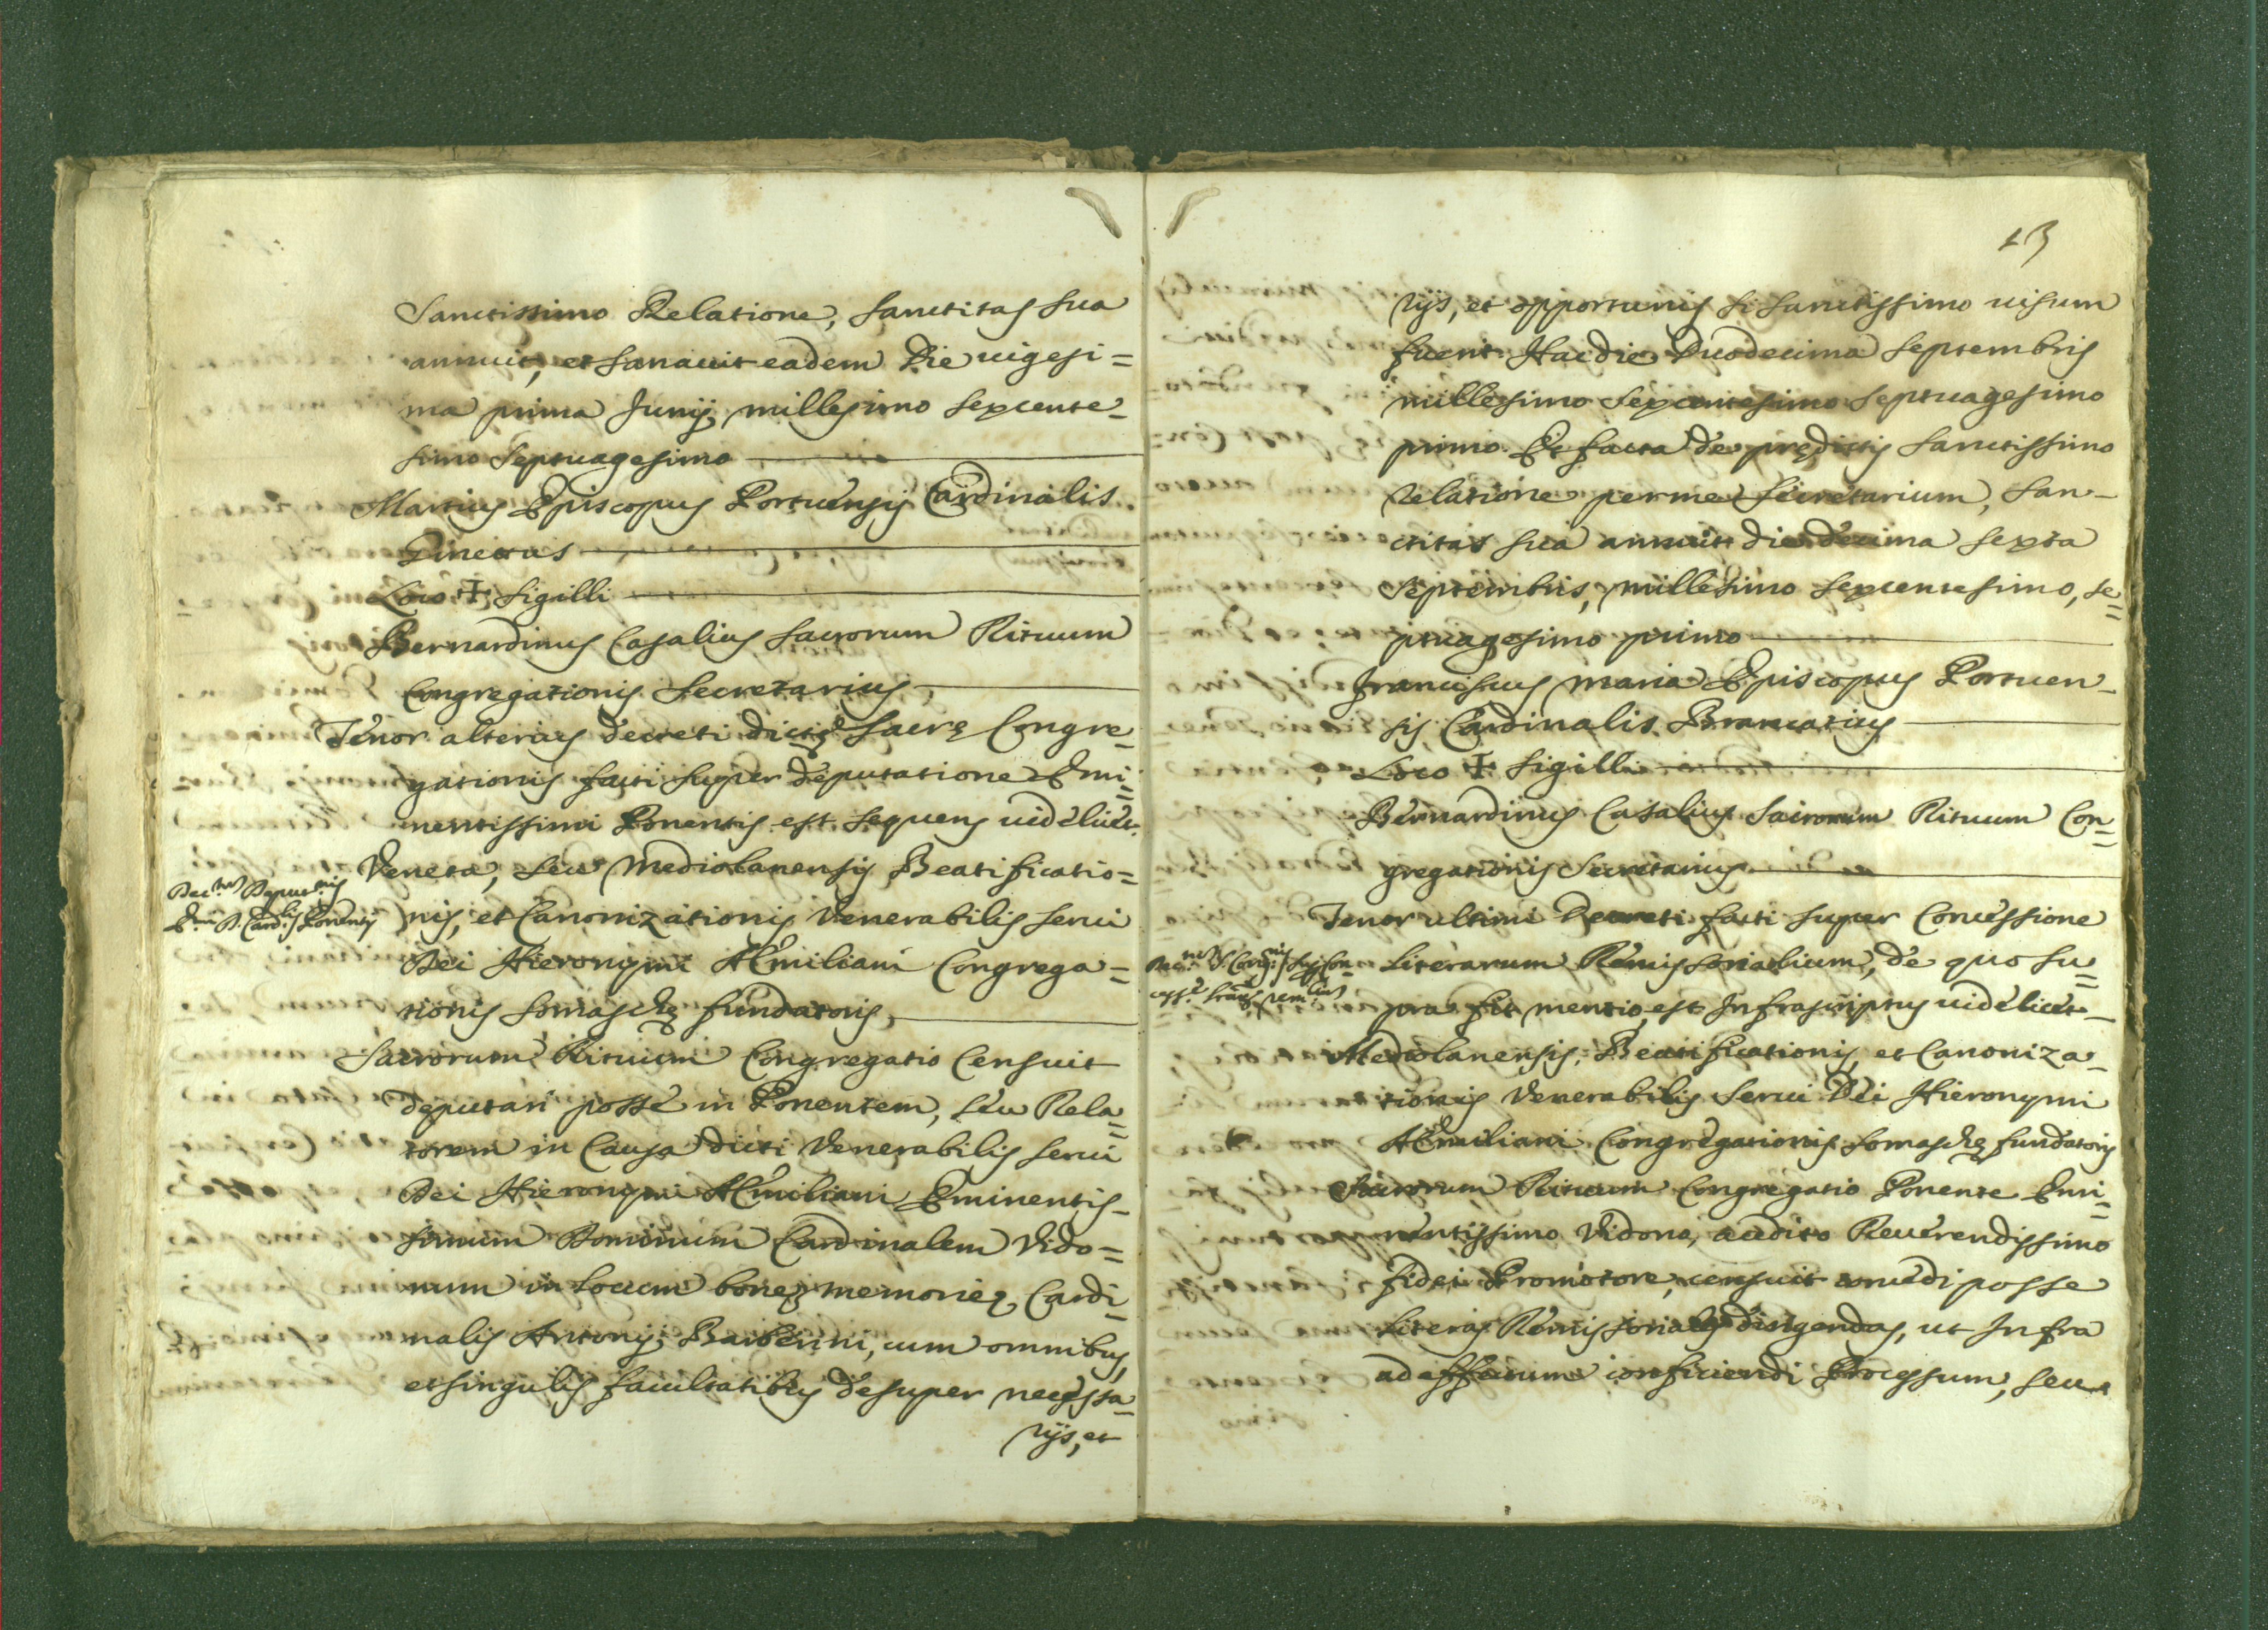 Sanctissimo Relatione, Sanctitas Sua
annuit, et sanauit eadem Die uigesi=
ma prima Junij millesimo sexcente_
simo Septuagesimo
Martius Episcopus Portuensis Cardinalis
Ginettus
Loco + Sigilli
Bernardinus Casalius Sacrorum Rituum
Congregationis Secretarius
Tenor alterius decreti dictę Sacrę Congre_
gationis facti super deputatione Emi=
nentissimi Ponentis est sequens uidelicet
Veneta, seu Mediolanensis Beatificatio=
nis, et Canonizationis Venerabilis serui
Dei Hieronymi AEmiliani Congrega=
tionis Somaschę fundatoris
Sacrorum Rituum Congregatio Censuit
deputari posse in Ponentem, seu Rela=
torem in Causa dicti Venerabilis serui
Dei Hieronymi AEmiliani Eminentis_
simum Dominum Cardinalem Vido=
num in locum bonę memorię Cardi=
nalis Antonij Barberini, cum omnibus,
et singulis facultatibus desuper necessa=
rijs, et
Ponentis
13
rijs, et opportunis si Sanctissimo uisum
fuerit. Hac die Duodecima Septembris
millesimo Sexcentesimo Septuagesimo
primo. Et facta de prędictis Sanctissimo
relatione per me Secretarium, San_
ctitas Sua annuit die decima sexta
Septembris, millesimo sexcentesimo, se=
ptuagesimo primo
Franciscus Maria Episcopus Portuen_
sis Cardinalis Brancatius
Loco + Sigilli
Bernardinus Casalius Sacrorum Rituum Con=
gregationis Secretarius
Tenor ultimi Decreti facti super Concessione
Literarum Remissorialium, de quo su=
pra fit mentio est Infrascriptus uidelicet_
Mediolanensis, Beatificationis, et Canoniza_
tionis Venerabilis Serui Dei Hieronymi
AEmiliani Congregationis Somaschę fundatoris
Sacrorum Rituum Congregatio Ponente Emi=
nentissimo Vidono, audito Reuerendissimo
fidei Promotore, censuit concedi posse
Literas Remissoriales dirigendas, ut Infra
ad effectum conficiendi Processum, seu